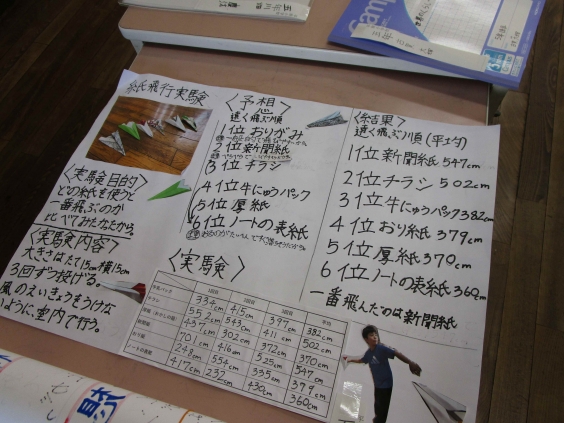 紙飛行実験
〈実験目的〉
どの紙を使うと
一番飛ぶのか
比べてみたかったから
〈実験内容〉
大きさはたて15cm横15cm
3回ずつ投げる。
風のえいきょうをうけな
いように、室内で行う。
〈予想〉
遠く飛ぶ順
1位 おりがみ
2位 新聞紙
3位 チラシ
4位 牛にゅうパック
5位 厚紙
6位 ノートの表紙
〈結果〉
遠く飛ぶ順(平均)
1位 新聞紙 547cm
2位 チラシ 502cm
3位 牛にゅうパック 382cm
4位 おり紙 379cm
5位 厚紙 370cm
6位 ノートの表紙 360cm
一番飛んだのは新聞紙
〈実験〉
1回目 2回目 3回目 平均
牛乳パック 334cm 415cm 397cm 382cm
チラシ 552cm 543cm 411cm 502cm
437cm 302cm 372cm 370cm
新聞紙 701cm 416cm 525cm 547cm
おり紙 248cm 554cm 335cm 379cm
ノートの表紙 417cm 232cm 430cm 360cm
財